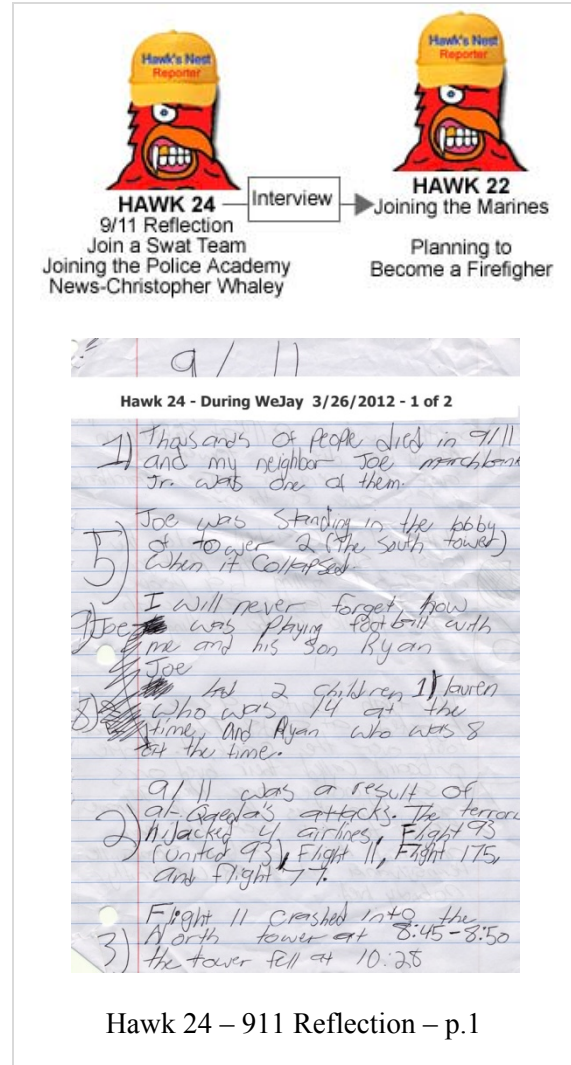 Hawk's Nest
Reporter
Hawk's Nest
Reporter
HAWK 24
9/11 Reflection
Join a Swat Team
Joining the Police Academy
News-Christopher Whaley
Interview
HAWK 22
Joining the Marines
Planning to
Become a Firefigher
9/11
Hawk 24 - During WeJay 3/26/2012 - 1 of 2
1) Thousands of people died in 9/11
and my neighbor Joe marchbank
Jr. was one of them.
5) Joe was standing in the lobby
of tower 2 (the south tower)
when it collapsed.
I will never forget how
Joe was playing football with
me and his son Ryan
Joe
had 2 children 1) lauren
8) who was 14 at the
time, and Ryan who was 8
at the time.
9/11 was a result of
2) al-Qaeda's attacks. The terrori
hijacked 4 airlines, Flight 93
(united 93), Flight 11, Flight 175,
and flight 77.
Flight 11 crashed into the
3) North tower at 8:45-8:50
the tower fell at 10:28
Hawk 24 – 911 Reflection – p.1